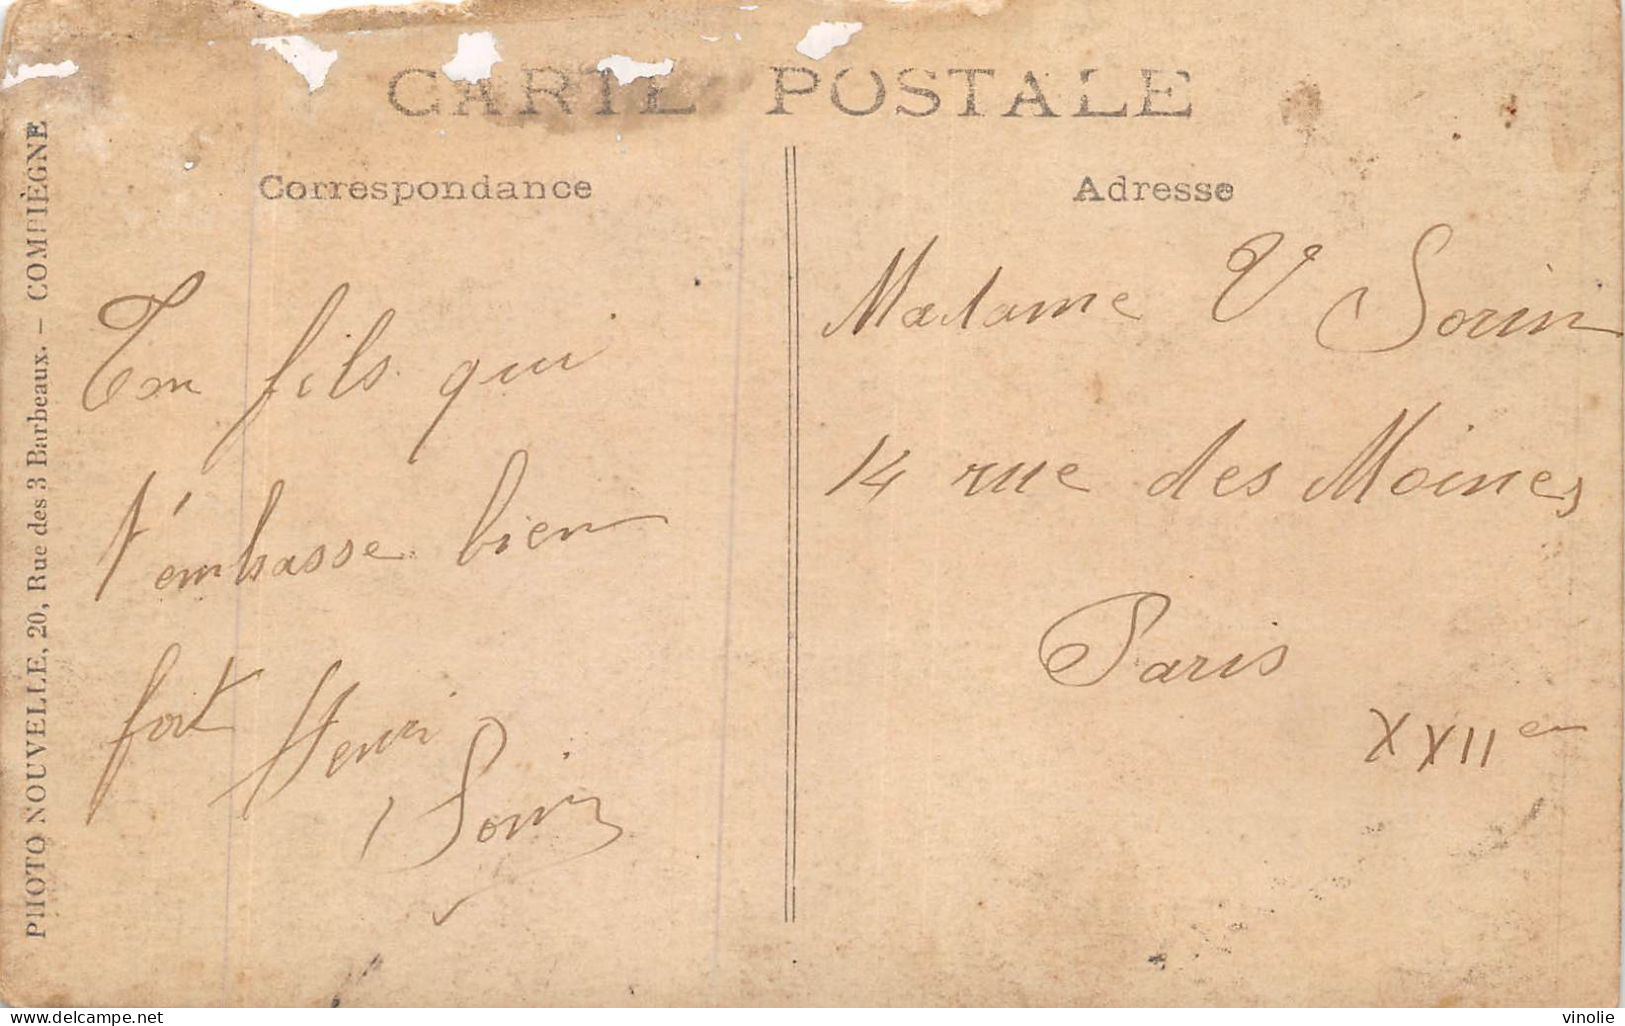 CARTE POSTALE
Correspondance
Adresse
PHOTO NOUVELLE, 20, Rue des 3 Barbeaux. — COMPIÈGNE
Ton fils qui
t'embrasse bien
fort Henri
Sorin
Madame V Sorin
14 rue des Moines
Paris
XXIIem
delcampe.net
vinolie